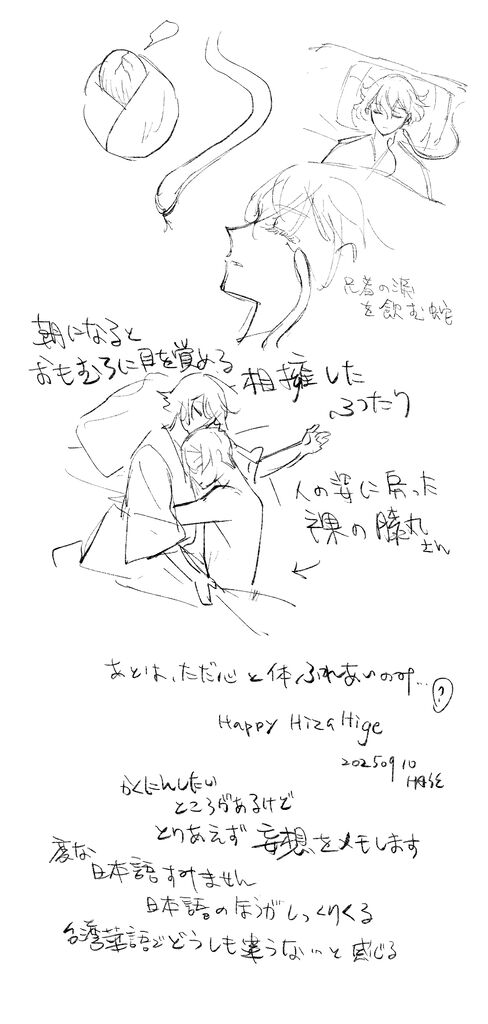 兄者の涙
を飲む蛇
朝になると
おもむろに目を覚める
相擁した
ふったり
人の姿に戻った
裸の膝丸
さん
あとは、ただ心と体ふれあいのみ…?
Happy HizaHige
20250910
かくにんしたい
ところがあるけど
とりあえず妄想をメモします
変な
日本語すみません
日本語のほうがしっくりくる
台湾華語でどうしも違うな…と感じる